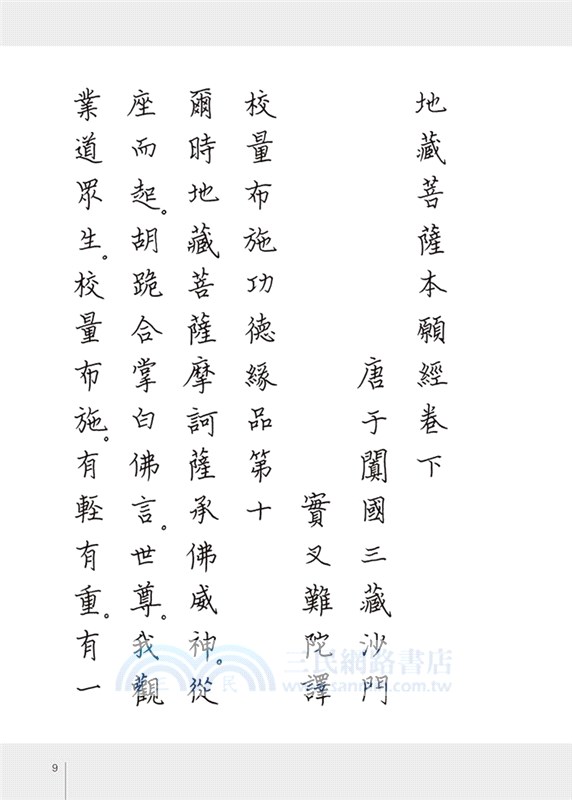 地藏菩薩本願經卷下
唐于闐國三藏沙門
實叉難陀譯
校量布施功德緣品第十
爾時地藏菩薩摩訶薩承佛威神。從
座而起。胡跪合掌白佛言。世尊。我觀
業道眾生。校量布施。有輕有重。有一
三民網路書店
www.sanmin.com.tw
三民
9